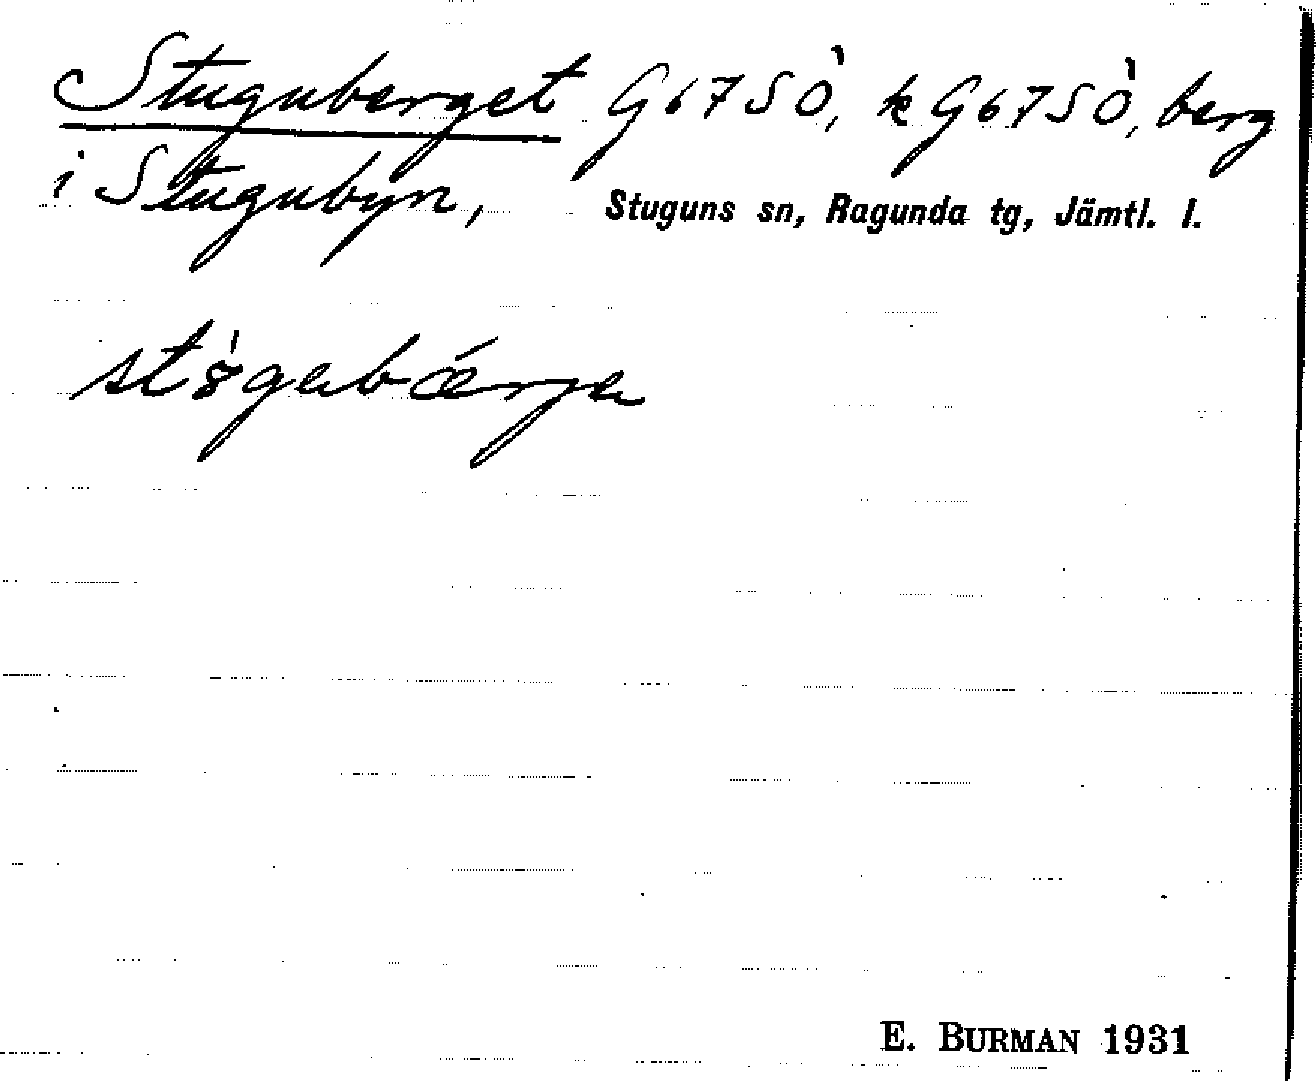 Stuguberget G67SÖ, k G67SÖ, berg
i Stugubyn, Stuguns sn, Ragunda tg, Jämtl. l.
E. BURMAN 1931